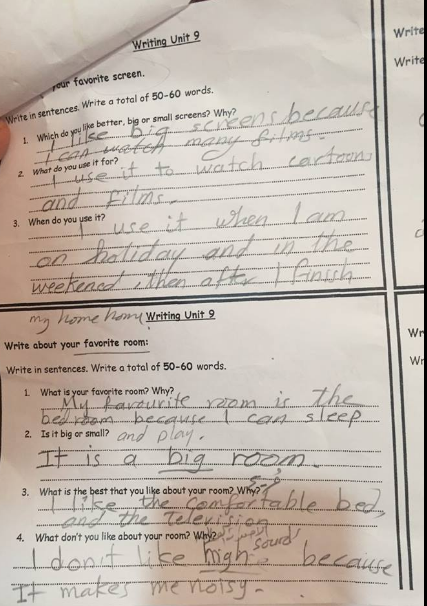 Writing Unit 9
your favorite screen.
Write in sentences. Write a total of 50-60 words.
1. Which do you like better, big or small screens? Why?
I like big screens because
I can watch many films.
2. What do you use it for?
I use it to watch cartoons
and films.
3. When do you use it?
I use it when I am
on holiday and in the
weekend, then after I finish
my home home Writing Unit 9
Write about your favorite room:
Write in sentences. Write a total of 50-60 words.
1. What is your favorite room? Why?
My favourite room is the
bedroom because I can sleep
2. Is it big or small? and play.
It is a big room.
3. What is the best that you like about your room? Why?
I like the comfortable bed,
and the Television
4. What don't you like about your room? Why?
sound
I don't like high because
It makes me noisy.
Write
Write
Wr
Wr